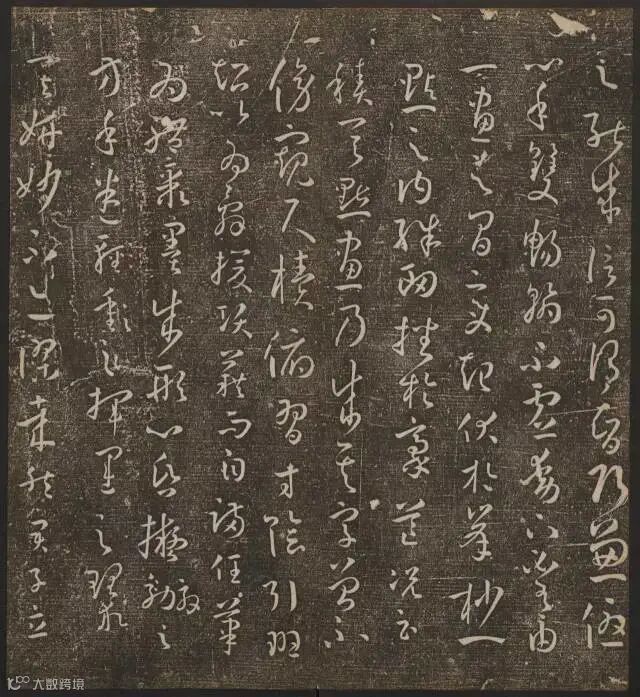 之能成信可謂智巧兼優
心手雙暢翰不虛動下必有由
一畫之間變起伏於峯杪一
點之內殊衄挫於豪芒況云
積其點畫乃成其字曾不
傍窺尺牘俯習寸陰引班
超以為辭援項籍而自滿任筆
為體聚墨成形心昏擬效之
方手迷揮運之理求
其妍妙不亦謬哉然君子立
大数跨境